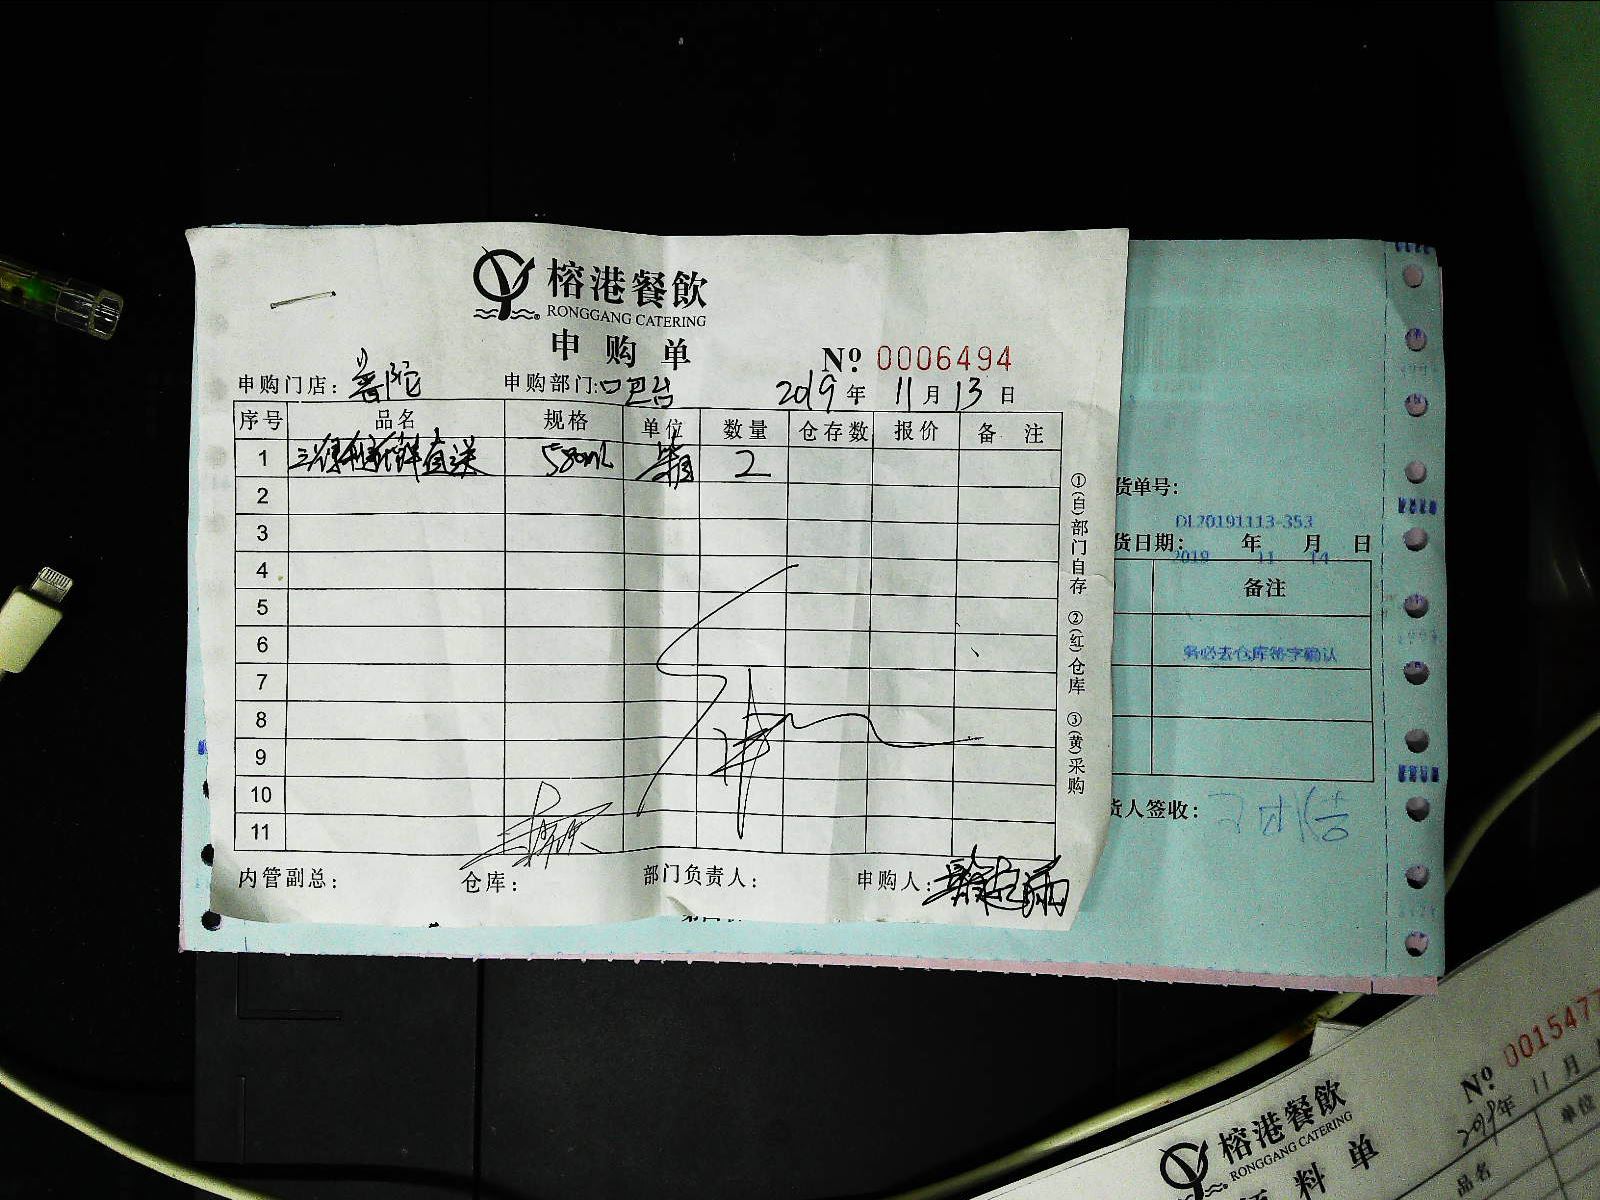 榕港餐飲
RONGGANG CATERING
申购单
№ 0006494
申购门店：普陀 申购部门：吧台 2019年11月13日
序号 品名 规格 单位 数量 仓存数 报价 备注
1 580ml 箱 2
2
3
4
5
6
7
8
9
10
11
内管副总： 仓库： 部门负责人： 申购人：
①(白)部门自存 ②(红)仓库 ③(黄)采购
货单号：
DL20191113-353
货日期： 年 月 日
2019 11 14
备注
务必去仓库签字确认
货人签收：
榕港餐飲
RONGGANG CATERING
料单
№ 001547
2019年11月
品名
单位